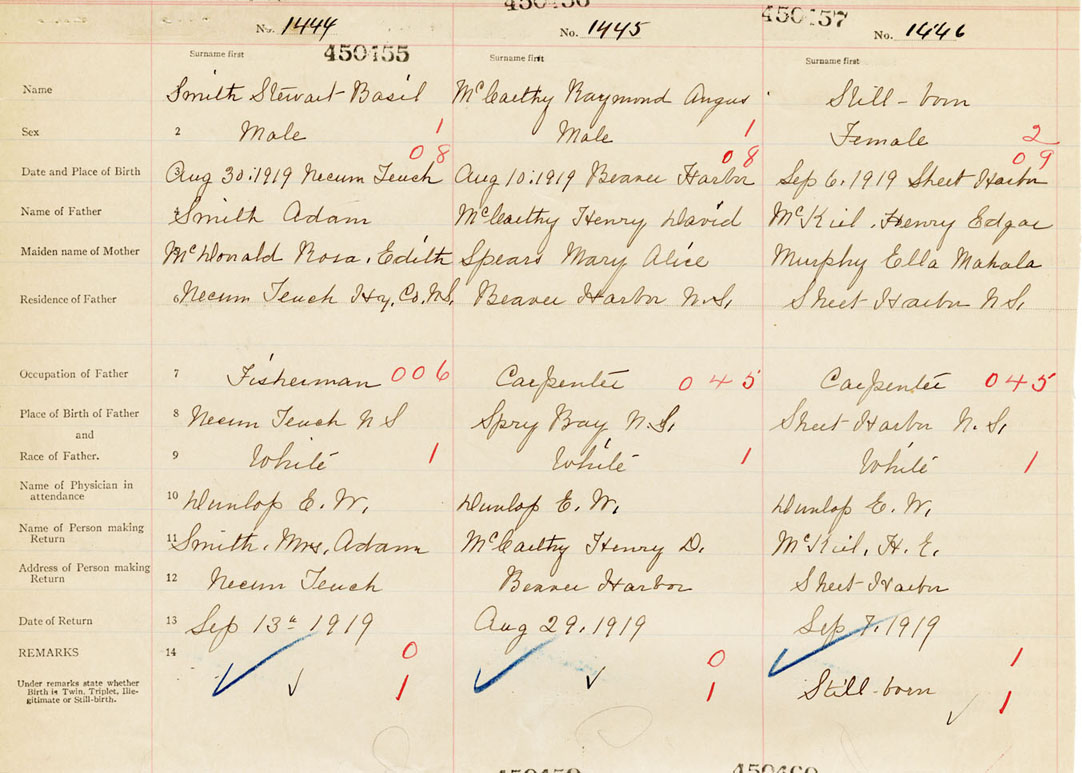 450156
450157
No. 1444
No. 1445
No. 1446
450155
Surname first
Surname first
Surname first
Name
Smith Stewart Basil
McCarthy Raymond Angus
Still-born
Sex
2
Male
1
Male
1
Female
2
08
08
09
Date and Place of Birth
3
Aug 30.1919 Necum Teuch
Aug 10.1919 Beaver Harbor
Sep 6.1919 Sheet Harbor
Name of Father
4
Smith Adam
McCarthy Henry David
McKiel, Henry Edgar
Maiden name of Mother
McDonald Rosa, Edith
Spears Mary Alice
Murphy Ella Mahala
Residence of Father
6
Necum Teuch Hx, Co, N.S,
Beaver Harbor N.S,
Sheet Harbor N S,
Occupation of Father
7
Fisherman
006
Carpenter
045
Carpenter
045
Place of Birth of Father
8
Necum Teuch N S
Spry Bay N.S,
Sheet Harbor N.S,
and
Race of Father.
9
White
1
White
1
White
1
Name of Physician in
attendance
10
Dunlop E. W,
Dunlop E. W,
Dunlop E. W,
Name of Person making
Return
11
Smith, Mrs, Adam
McCarthy Henry D.
McKiel, H. E.
Address of Person making
Return
12
Necum Teuch
Beaver Harbor
Sheet Harbor
Date of Return
13
Sep 13th 1919
Aug 29.1919
Sep 7.1919
REMARKS
14
0
0
1
Under remarks state whether
Birth is Twin, Triplet, Ille-
gitimate or Still-birth.
1
1
Still-born
1
450459
450460